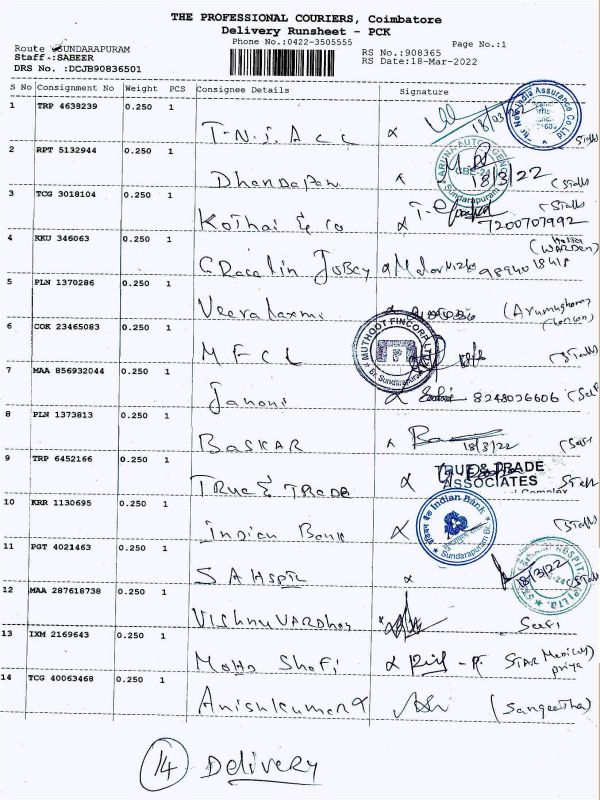 THE PROFESSIONAL COURIERS, Coimbatore
Delivery Runsheet - PCK
Phone No.:0422-3505555
Page No.:1
Route :SUNDARAPURAM
Staff :SABEER
DRS No. :DCJB90836501
RS No.:908365
RS Date:18-Mar-2022
S No Consignment No Weight PCS Consignee Details Signature
1 TRP 4638239 0.250 1
T.N.I.A C C 18/03/22
2 RPT 5132944 0.250 1
Dhandapan 18/3/22
3 TCG 3018104 0.250 1
Kothai & Co 7200707992
4 KKU 346063 0.250 1
(WARDEN)
Gracelin Jobcy 98940 18418
5 PLN 1370286 0.250 1
Veeralaxmi
6 COK 23465083 0.250 1
MUTHOOT FINCORP LTD
Br. Sundarapuram
M F C L
7 MAA 856932044 0.250 1
Janani 8248026606 (Self
8 PLN 1373813 0.250 1
BASKAR 18/3/22 (Self
9 TRP 6452166 0.250 1
TRUE & TRADE
ASSOCIATES
TRUE & TRADE
10 KRR 1130695 0.250 1
Indian Bank
Indian Bank
Sundarapuram Br.
11 PGT 4021463 0.250 1
18/3/22
S A HSPTL
12 MAA 287618738 0.250 1
VISHNU VARDHAN Self
13 IXM 2169643 0.250 1
MOHD Shafi STAR Medicals
priya
14 TCG 40063468 0.250 1
Anishkumar (Sangeetha)
14 DELIVERY